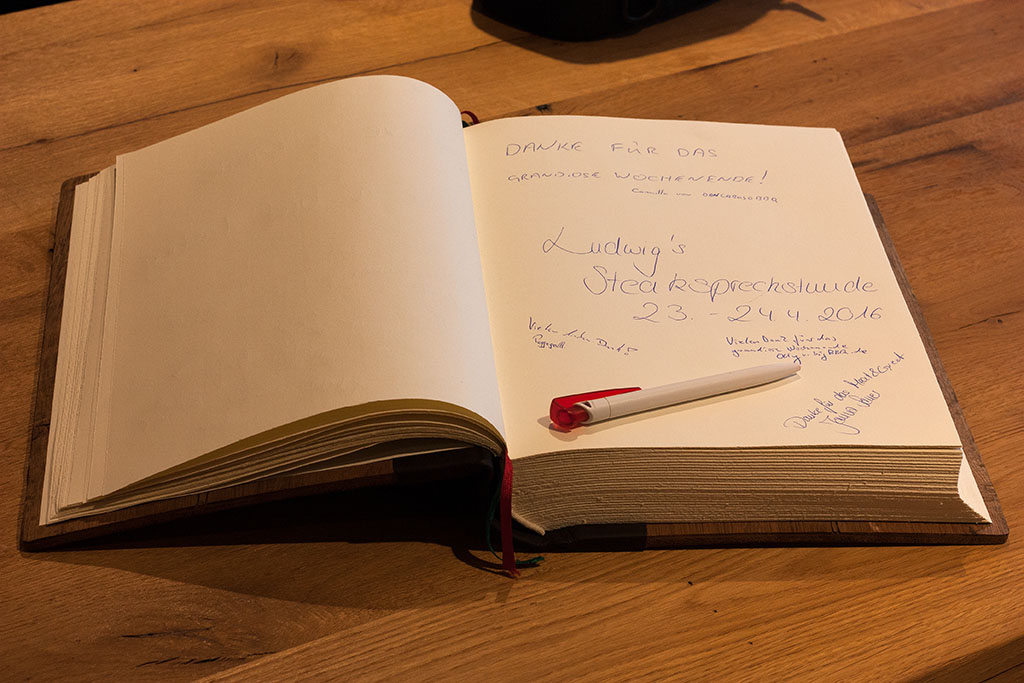 DANKE FÜR DAS
GRANDIOSE WOCHENENDE!
Ludwig's
Steaksprechstunde
23. - 24.4.2016
Vielen lieben Dank!
Vielen Dank für das
grandiose Wochenende
Danke für das Meat & Greet